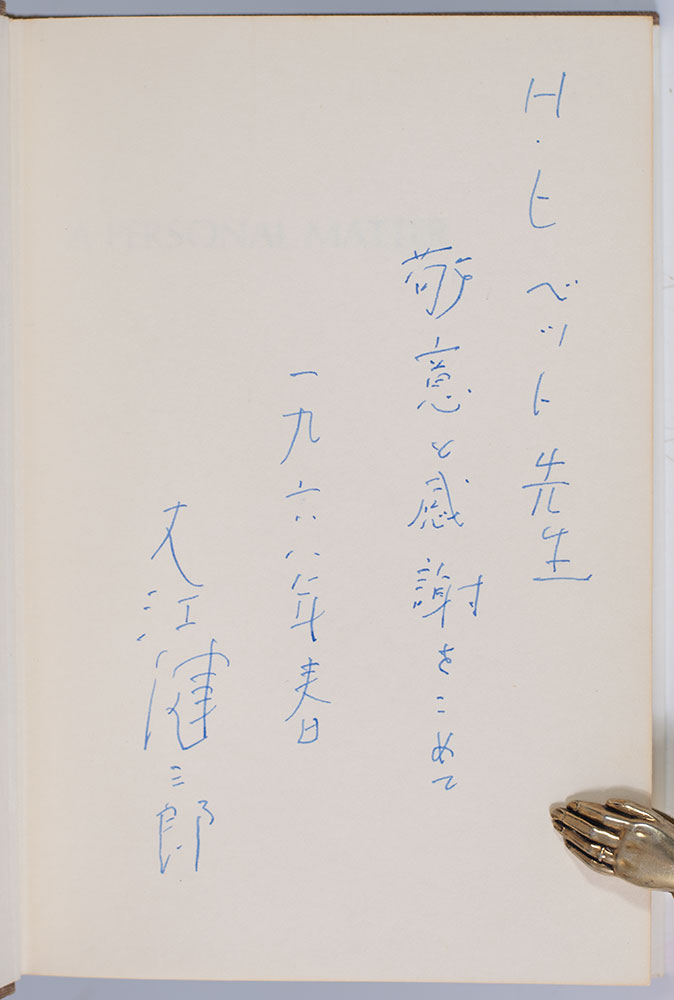 H・ヒベット先生
敬意と感謝をこめて
一九六八年春
大江健三郎
A PERSONAL MATTER